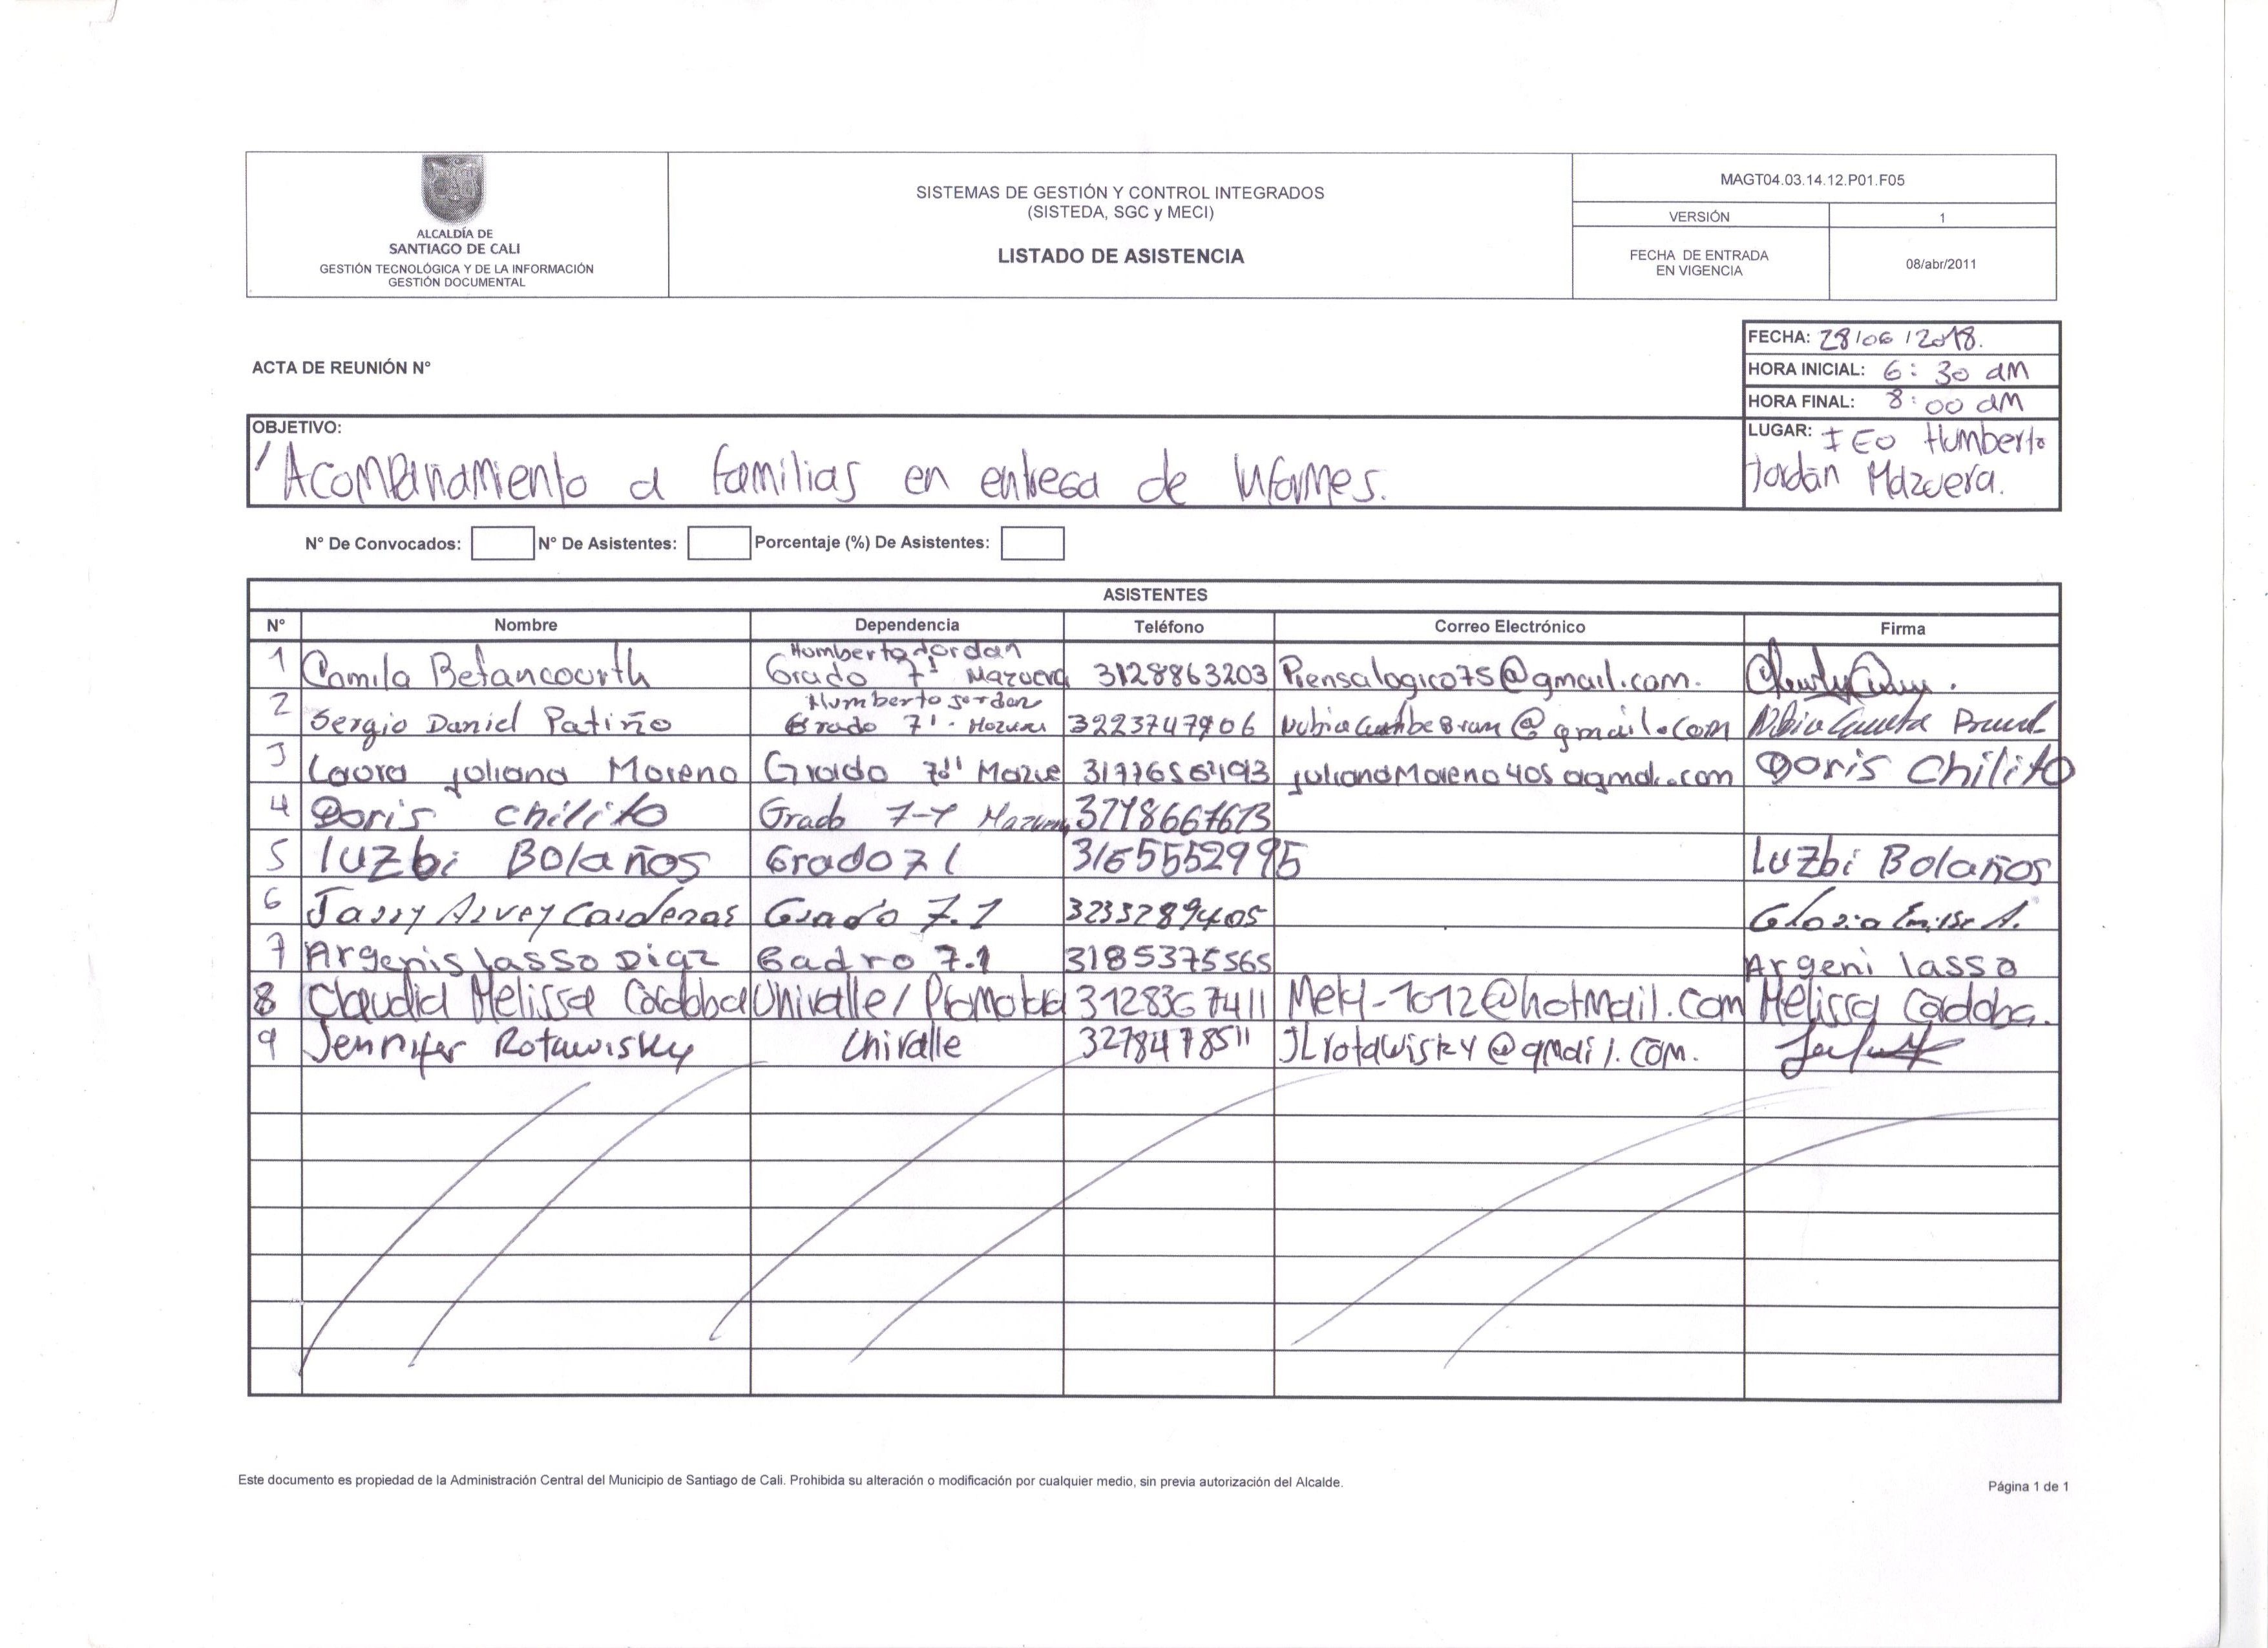 ALCALDÍA DE
SANTIAGO DE CALI
GESTIÓN TECNOLÓGICA Y DE LA INFORMACIÓN
GESTIÓN DOCUMENTAL
SISTEMAS DE GESTIÓN Y CONTROL INTEGRADOS
(SISTEDA, SGC y MECI)
LISTADO DE ASISTENCIA
MAGT04.03.14.12.P01.F05
VERSIÓN 1
FECHA DE ENTRADA
EN VIGENCIA
08/abr/2011
ACTA DE REUNIÓN N°
FECHA: 28/06/2018.
HORA INICIAL: 6:30 aM
HORA FINAL: 8:00 aM
LUGAR: IEO Humberto
Jordán Mazuera.
OBJETIVO:
Acompañamiento a familias en entrega de informes.
N° De Convocados: N° De Asistentes: Porcentaje (%) De Asistentes:
ASISTENTES
N° Nombre Dependencia Teléfono Correo Electrónico Firma
Humberto Jordan
1 Camila Betancourth Grado 7¹ Mazuera 3128863203 Piensalogico75@gmail.com.
Humberto Jordan
2 Sergio Daniel Patiño Grado 7¹. 3223747906
3 Laura juliana Moreno Grado Mazue Doris Chilito
4 Doris chilito Grado 7-1
5 luzbi Bolaños Grado 7 1 3165552995 Luzbi Bolaños
6 Cardenas Grado 7.1
7 Argenis lasso Diaz Gadro 7.1 3185375565 Argeni lasso
8 Claudia Melissa Cordoba Univalle/ 3128367411 Melissa Cordoba.
9 Jennifer Rotawisky Univalle JLrotawisky@gmail.com.
Este documento es propiedad de la Administración Central del Municipio de Santiago de Cali. Prohibida su alteración o modificación por cualquier medio, sin previa autorización del Alcalde.
Página 1 de 1